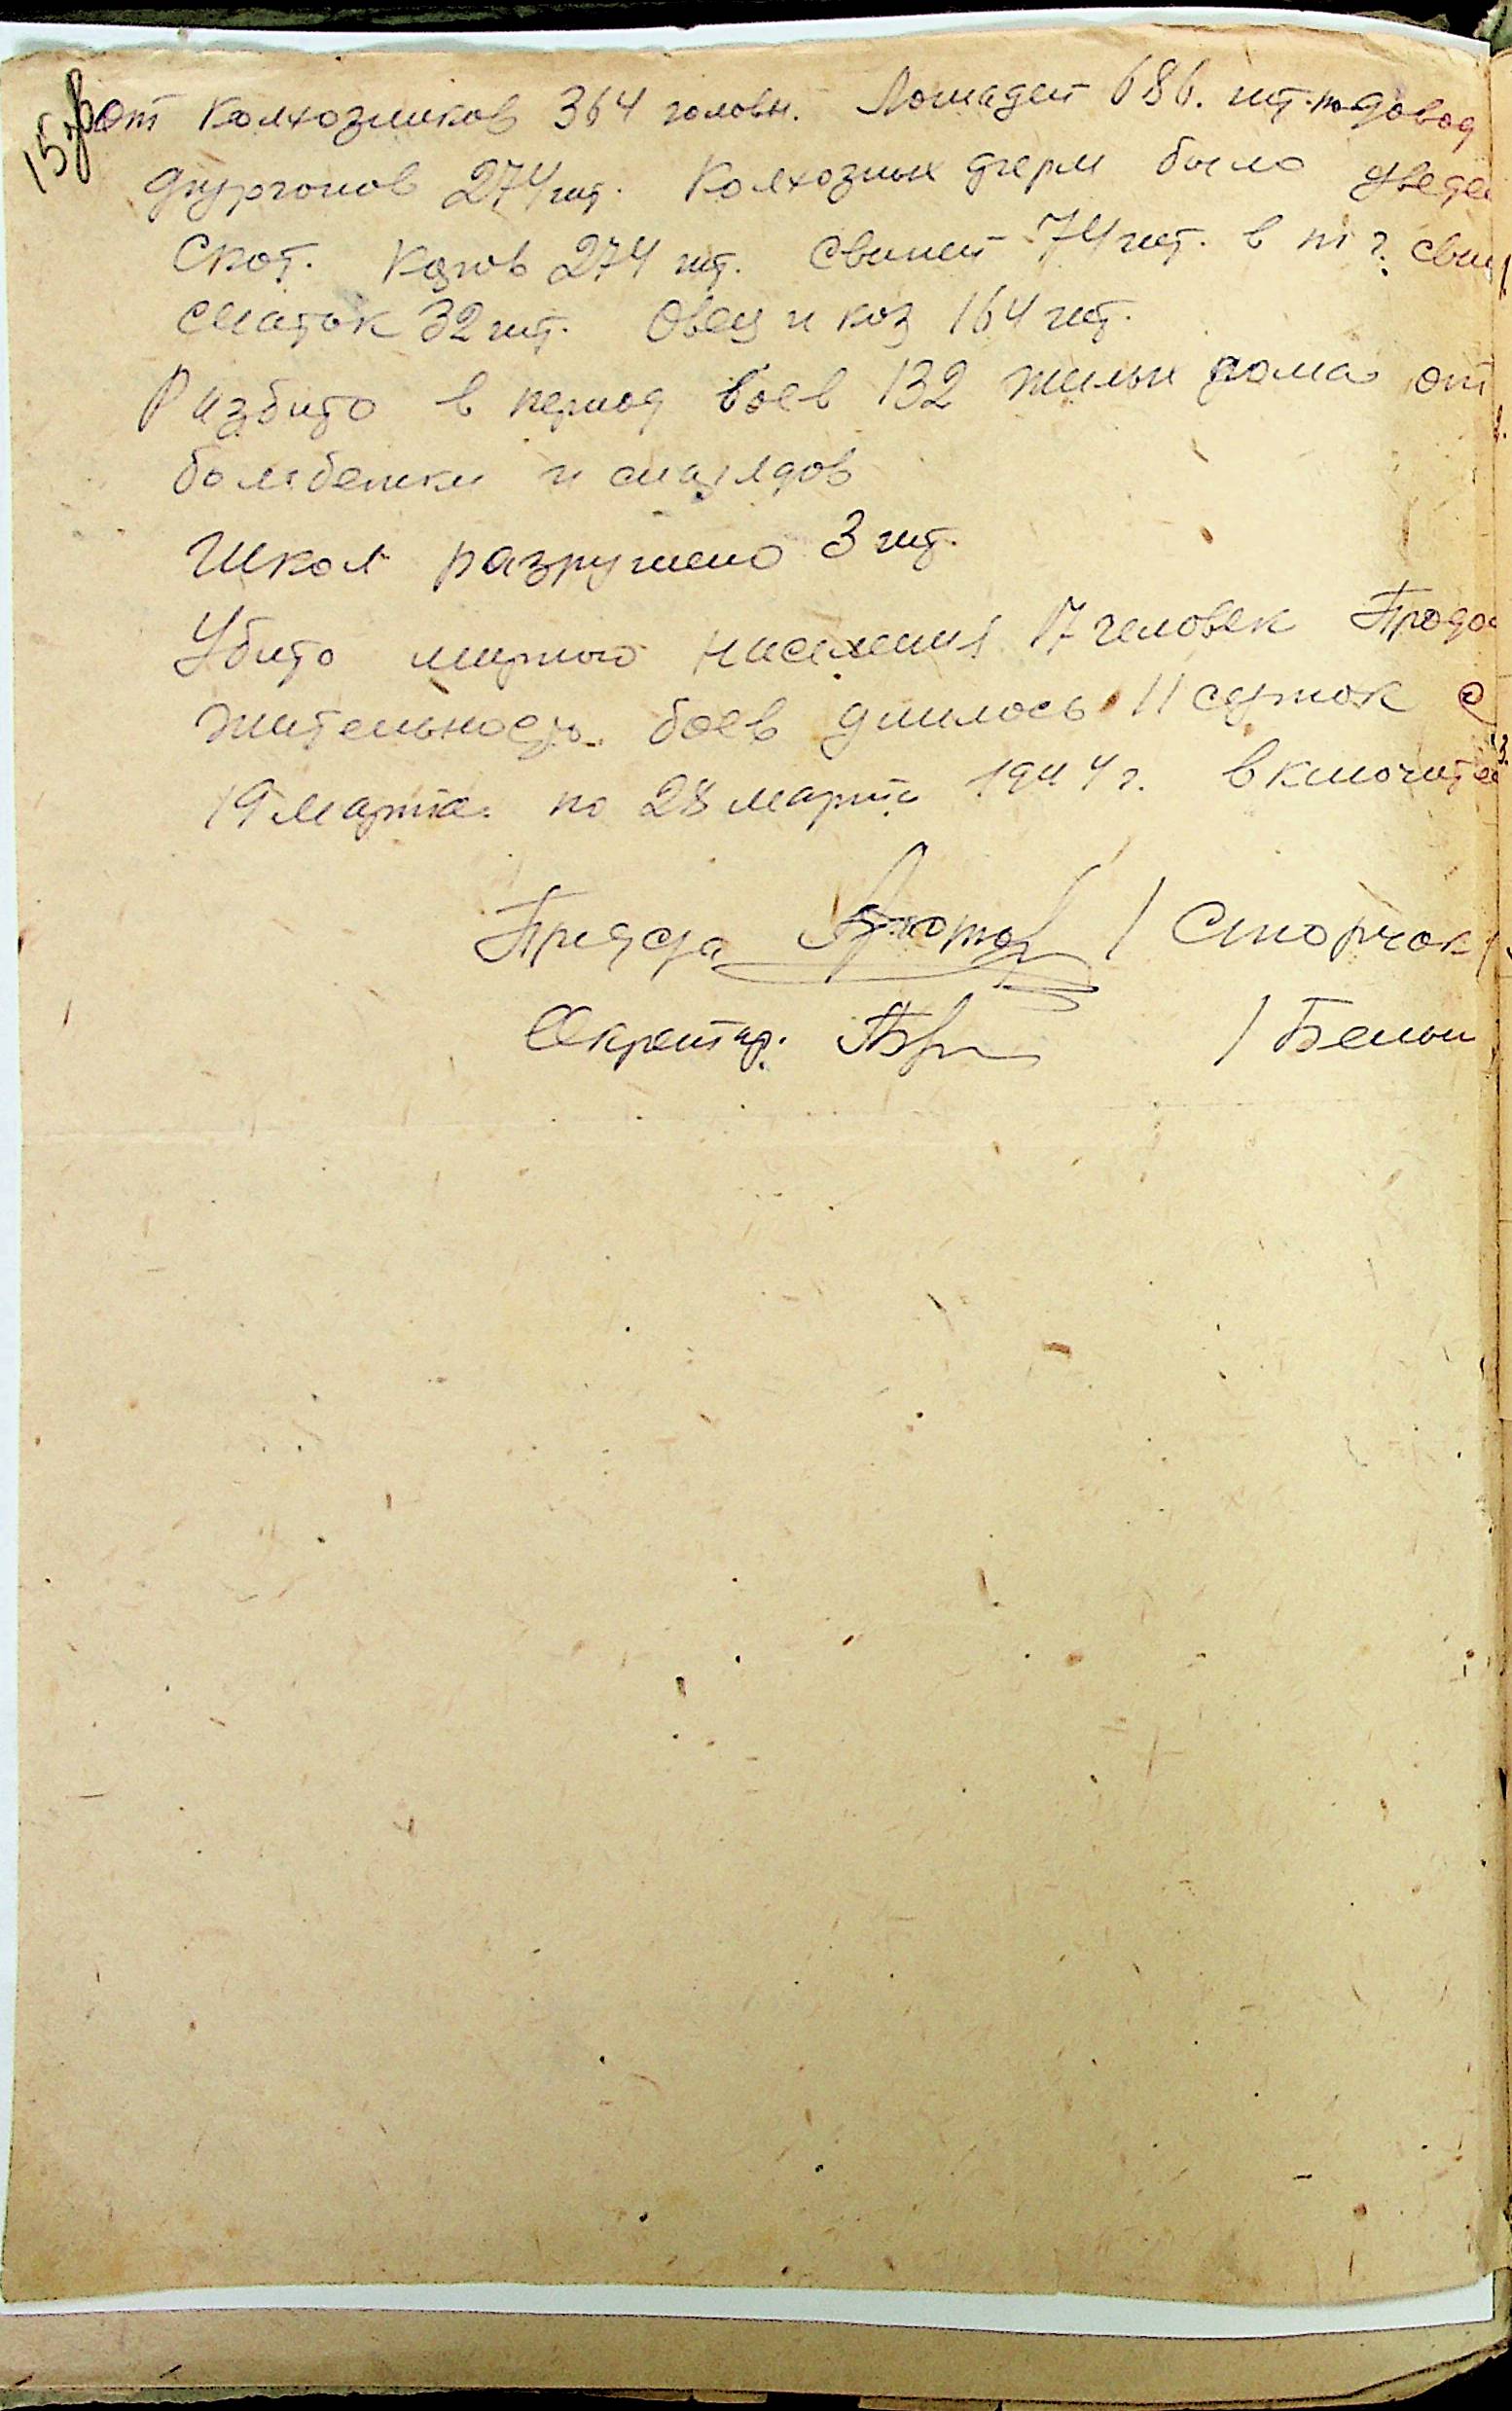 15 об
от колхозников 364 головы. Лошадей 686. шт. подвод
фургонов 274 шт. Колхозных ферм было уведе
Скот. Коров 274 шт. Свиней 74 шт. в т ч. свин
маток 32 шт. Овец и коз 164 шт.
Разбито в период боев 132 жилых дома от
бомбежки и снарядов
Школ разрушено 3 шт.
Убито мирного населения 17 человек Продол
жительность боев длилось 11 суток с
19 марта по 28 марта 1944 г. включите
Предс / Сторчак /
Секретар. / Белый